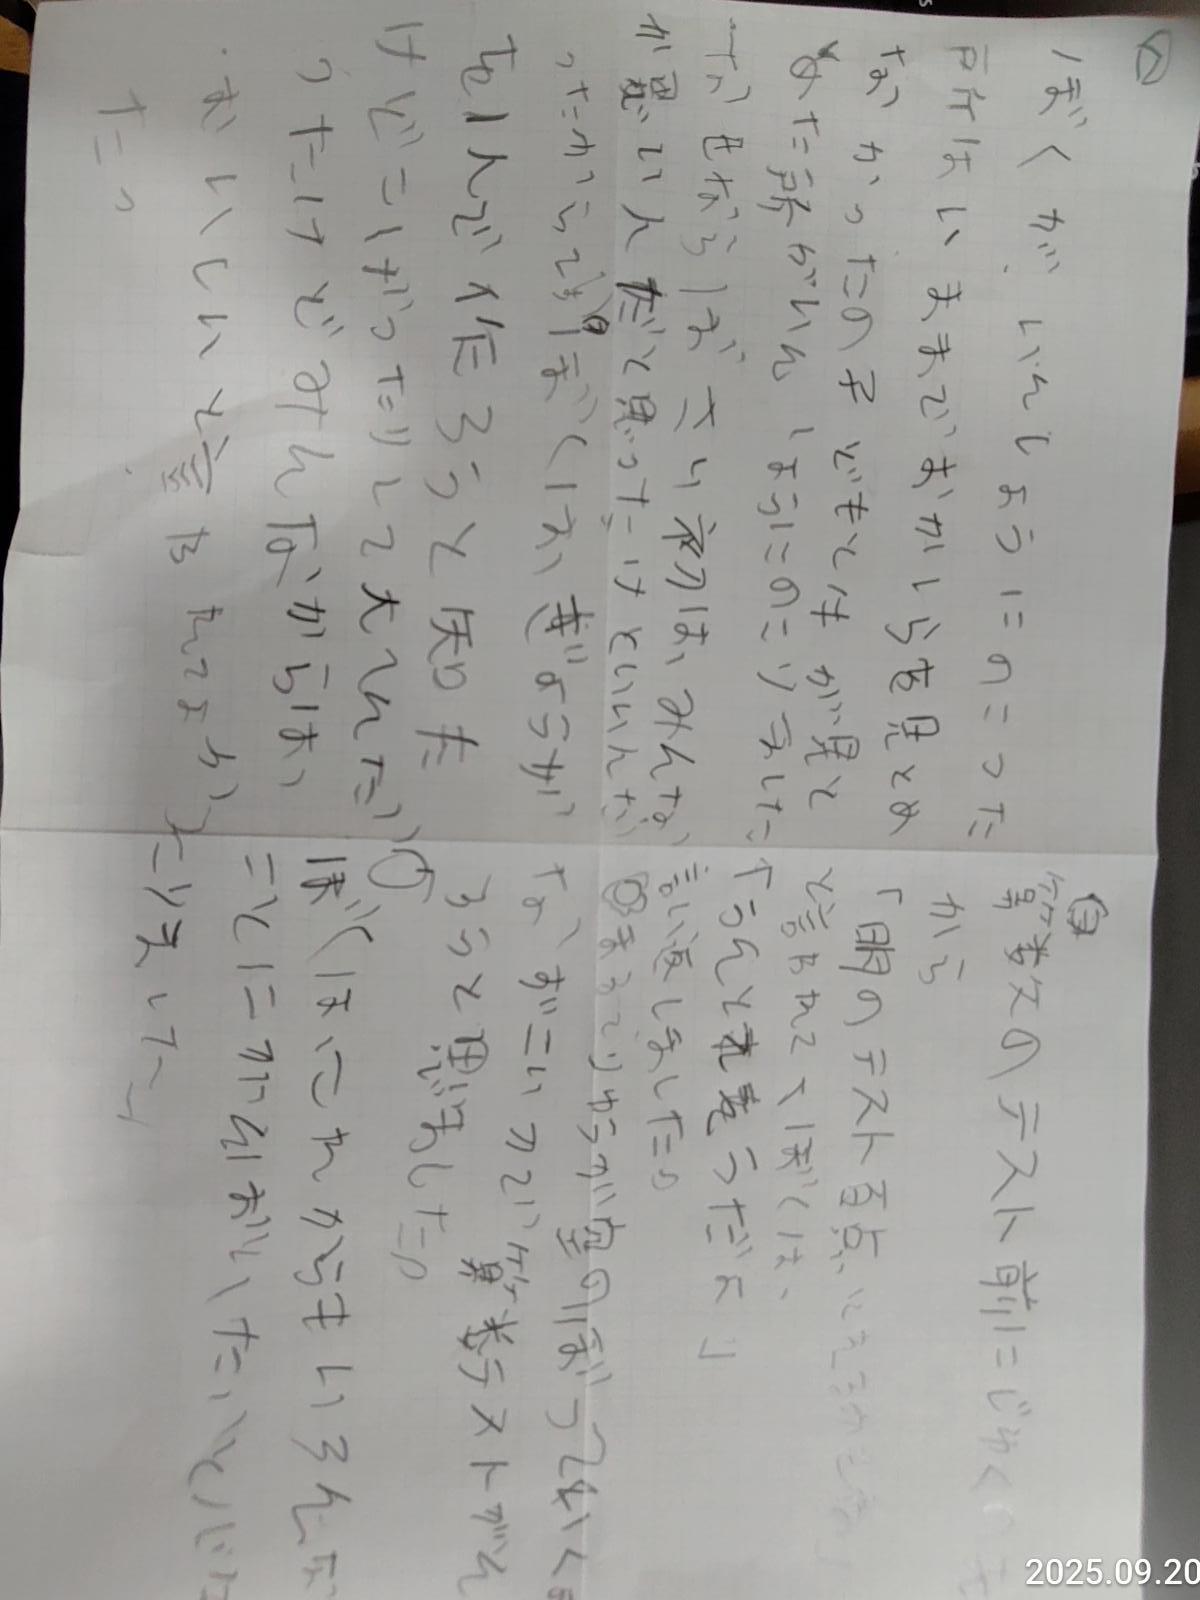 ぼくが、いんしょうにのこった
所はいままでおかしらを見とめ
なかったの子どもとはが見と
めた所がいんしょうにのこりました
なぜならば、さい初は、みんな
が思い人だと思ったけどいいんだ
ったからです。ぼくは、ぎょうが
1人で作ろうと知た
けどこげったりして大へんだ
ったけどみんなからは、
おいしいと言われてよかっ
た。
算数のテスト前にじゅくの
から
「明のテスト百点
と言われて、ぼくは、
「うんとれそうだよ」
言い返しました。
まるでりゅうが空のぼっていく
なすごい力で算数テストがん
ろうと思いました。
ぼくはこれからもいろんな
ことにがんばりたいと
2025.09.20